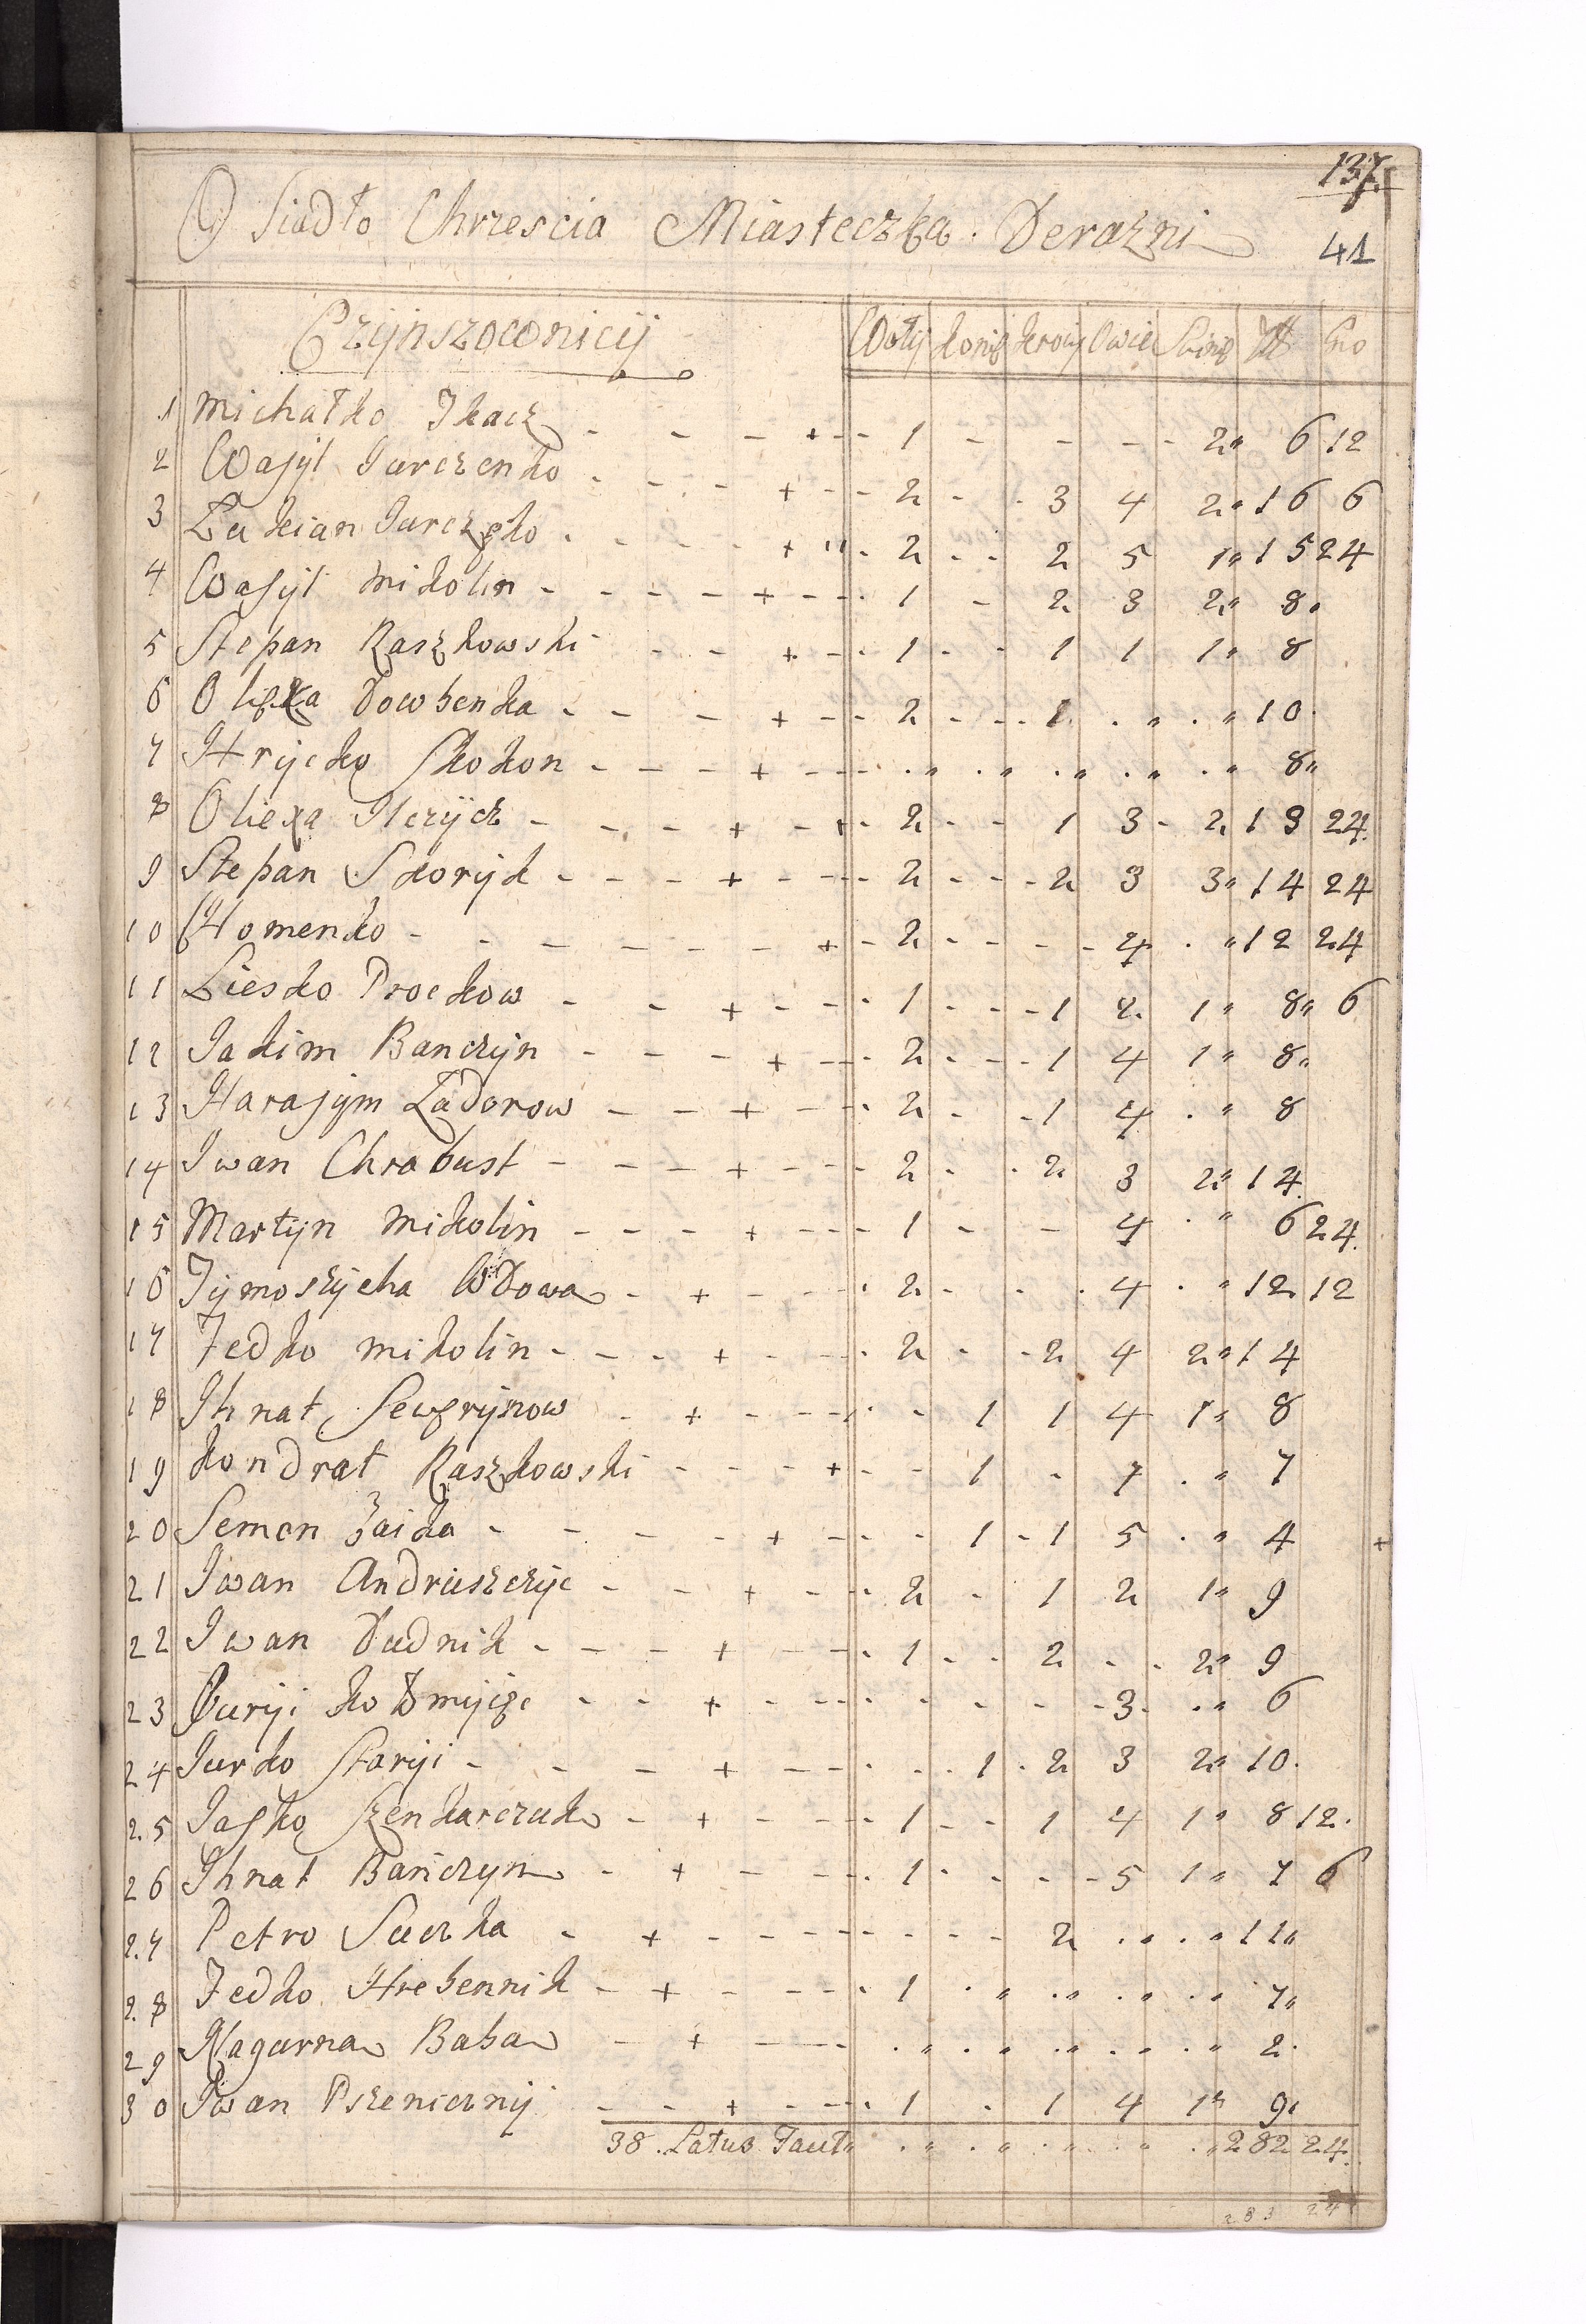 137.
Osiadło Chrzescia Miasteczka Derazni
41
Czÿnszownicÿ Wołÿ konie krowÿ Owiec Swinie Zł Gro
1 Michałko Tkacz - - - + - - 1 - - - - 2 " 6 12
2 Wasÿl Jurczenko - - - + - - 2 - - 3 4 2 " 16 6
3 Łukian Jurczeko - - - + " - 2 - - 2 5 1 " 15 24
4 Wasÿl Mikolin - - - - + - - 1 - 2 3 2 " 8 "
5 Stepan Raszkowski - - + - - 1 - - 1 1 1 " 8
6 Olexa Dowbenka - - - + - - 2 - - - 1 . " . " 10
7 Hrÿcko Skokon - - - + - - - . " . " . " . " . " 8 "
8 Oliexa Ilczÿcz - - - + - + - 2 - - 1 3 - 2 13 24
9 Stepan Skorÿk - - - + - - - 2 - - - 2 3 3 " 14 24
10 Homenko - - - - - - + - 2 - - - - 4 . " 12 24
11 Liesko Prockow - - + - - - 1 - - - 1 2 1 " 8 " 6
12 Jakim Banczÿn - - - + - - - 2 - - - 1 4 1 " 8 "
13 Harasÿm Ładorow - - + - - - 2 - - 1 4 . " 8
14 Iwan Chrabust - - - + - - - 2 - . 2 3 2 " 14
15 Martÿn Mikolin - - - + - - - 1 - - 4 . " 6 24
16 Tÿmoszÿcha Wdowa - + - - - 2 - - . 4 . " 12 12
17 Fedko Mikolin - - - + - - - 2 - - 2 4 2 " 14
18 Ihnat Sewerÿnow - + - - - - - 1 1 4 1 " 8
19 Kondrat Raszkowski - - - + - - - 1 - 7 . " 7
20 Semen Zaika - - - - + - - - 1 - 1 5 . " 4 +
21 Iwan Andriuszczÿc - - + - - - 2 - 1 2 1 " 9
22 Iwan Dudnik - - - + - - - 1 - - 2 - - 2 " 9
23 - - + - - - - - - - - 3 . " 6
24 Jurko Starÿi - - - + - - - - - 1 . 2 3 2 " 10
25 Jasko Szenkarczuk - + - - - 1 - - 1 4 1 " 8 12
26 Ihnat Banczyn - + - - - 1 - - - - 5 1 " 7 6
27 Petro Suczka - + - - - - - - - 2 . " . " 11 "
28 Fedko Hrebennik - + - - - - 1 . " . " . " . " 7 "
29 Nagurna Baba - + - - - . " . " . " . " . " 2
30 Iwan Pszenicznÿ - - + - - - 1 - 1 4 1 " 9
38. Latus Facit " . " . " . " . " . " 282 24
283 24